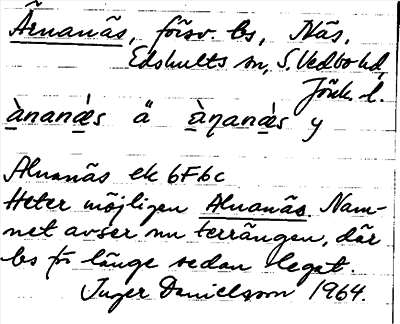 Ärnanäs, försv. bs, Näs,
Edshults sn, S. Vedbo hd,
Jönk. l.
ànanǽs ä ànanǽs y
Alnanäs ek 6F6c
Heter möjligen Alnanäs. Nam-
net avser nu terrängen, där
bs för länge sedan legat.
Inger Danielsson 1964.